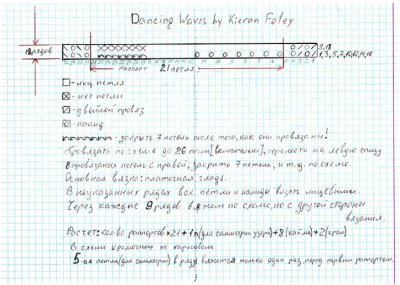 Dancing Waves by Kieran Foley
18 рядов
3,18
1,3,5,7,10,12,14,16
Раппорт 21 петля
- лиц. петля
- нет петли
- двойной провяз
- накид
- закрыть 7 петель после того, как они провязаны!
Провязать по схеме до 26 петли [включительно], перенести на левую спицу
8 провязанных петель с правой, закрыть 7 петель, и т.д. по схеме.
Основная вязка: платочная гладь.
В неуказанных рядах все петли и накиды вязать лицевыми.
Через каждые 9 рядов вяжем по схеме, но с другой стороны
вязания.
Расчет: кол-во раппортов x21 + 1п (для симметрии узора) + 8 (кайма) + 2 (кром)
В схеме кромочные не нарисованы.
5-ая петля (для симметрии) в ряду вяжется только один раз, перед первым раппортом.